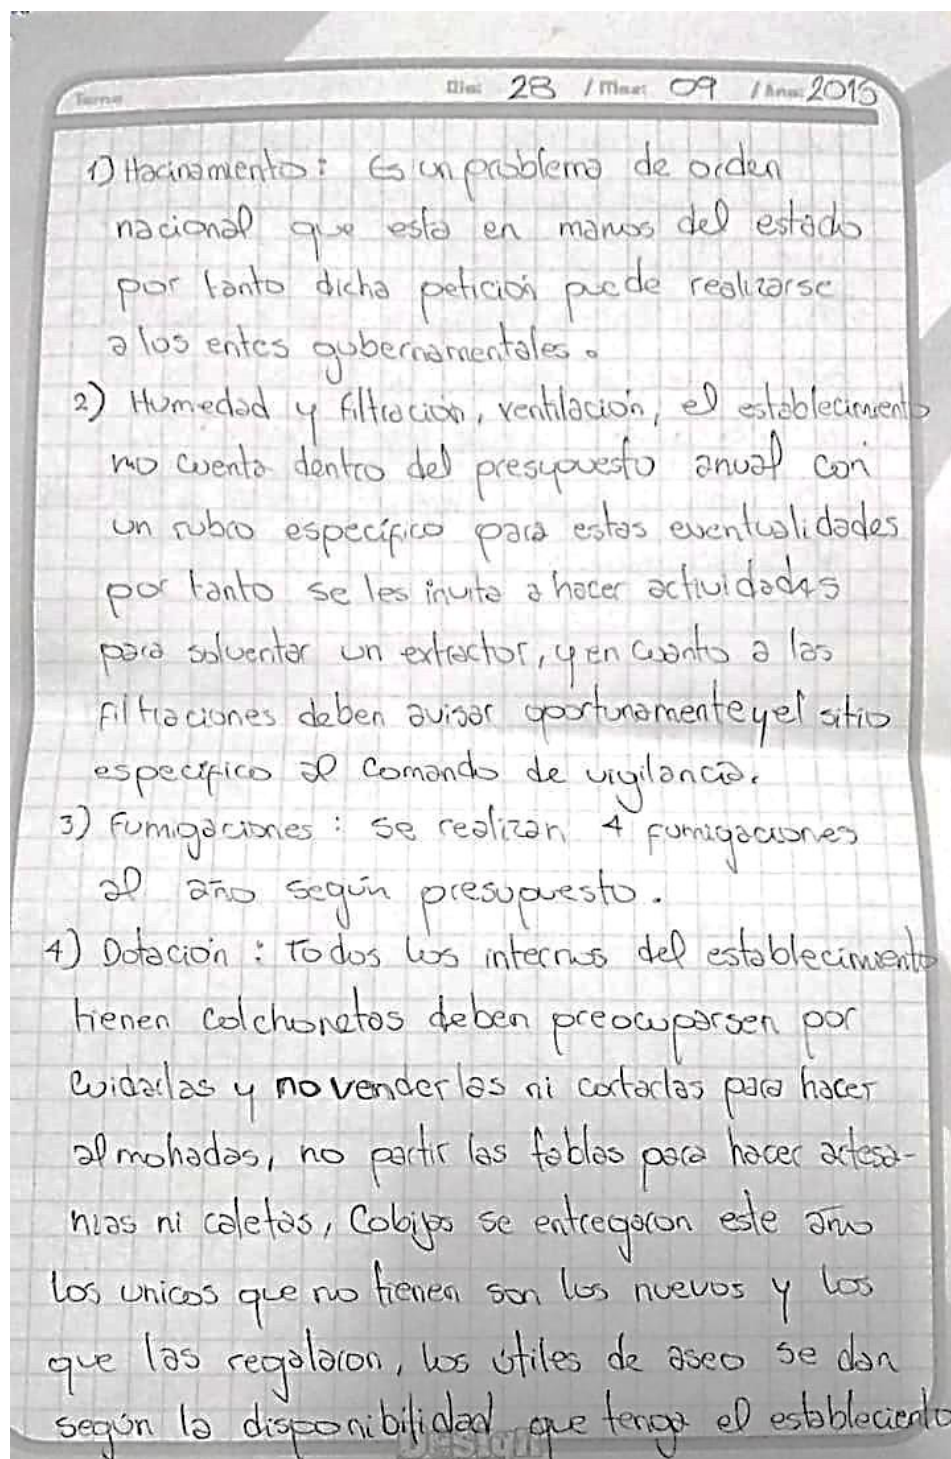 Tema Dia: 28 / Mes: 09 / Ano: 2015
1) Hacinamiento: Es un problema de orden
nacional que esta en manos del estado
por tanto dicha petición puede realizarse
a los entes gubernamentales.
2) Humedad y filtración, ventilación, el establecimiento
no cuenta dentro del presupuesto anual con
un rubro específico para estas eventualidades
por tanto se les invita a hacer actividades
para solventar un extractor, y en cuanto a las
filtraciones deben avisar oportunamente y el sitio
especifico al Comando de vigilancia.
3) Fumigaciones: se realizan 4 fumigaciones
al año según presupuesto.
4) Dotación: Todos los internos del establecimiento
tienen colchonetas deben preocuparsen por
cuidarlas y no venderlas ni cortarlas para hacer
almohadas, no partir las tablas para hacer artesa-
nias ni caletas, Cobijas se entregaron este año
los unicos que no tienen son los nuevos y los
que las regalaron, los útiles de aseo se dan
según la disponibilidad que tenga el estableciento
Design